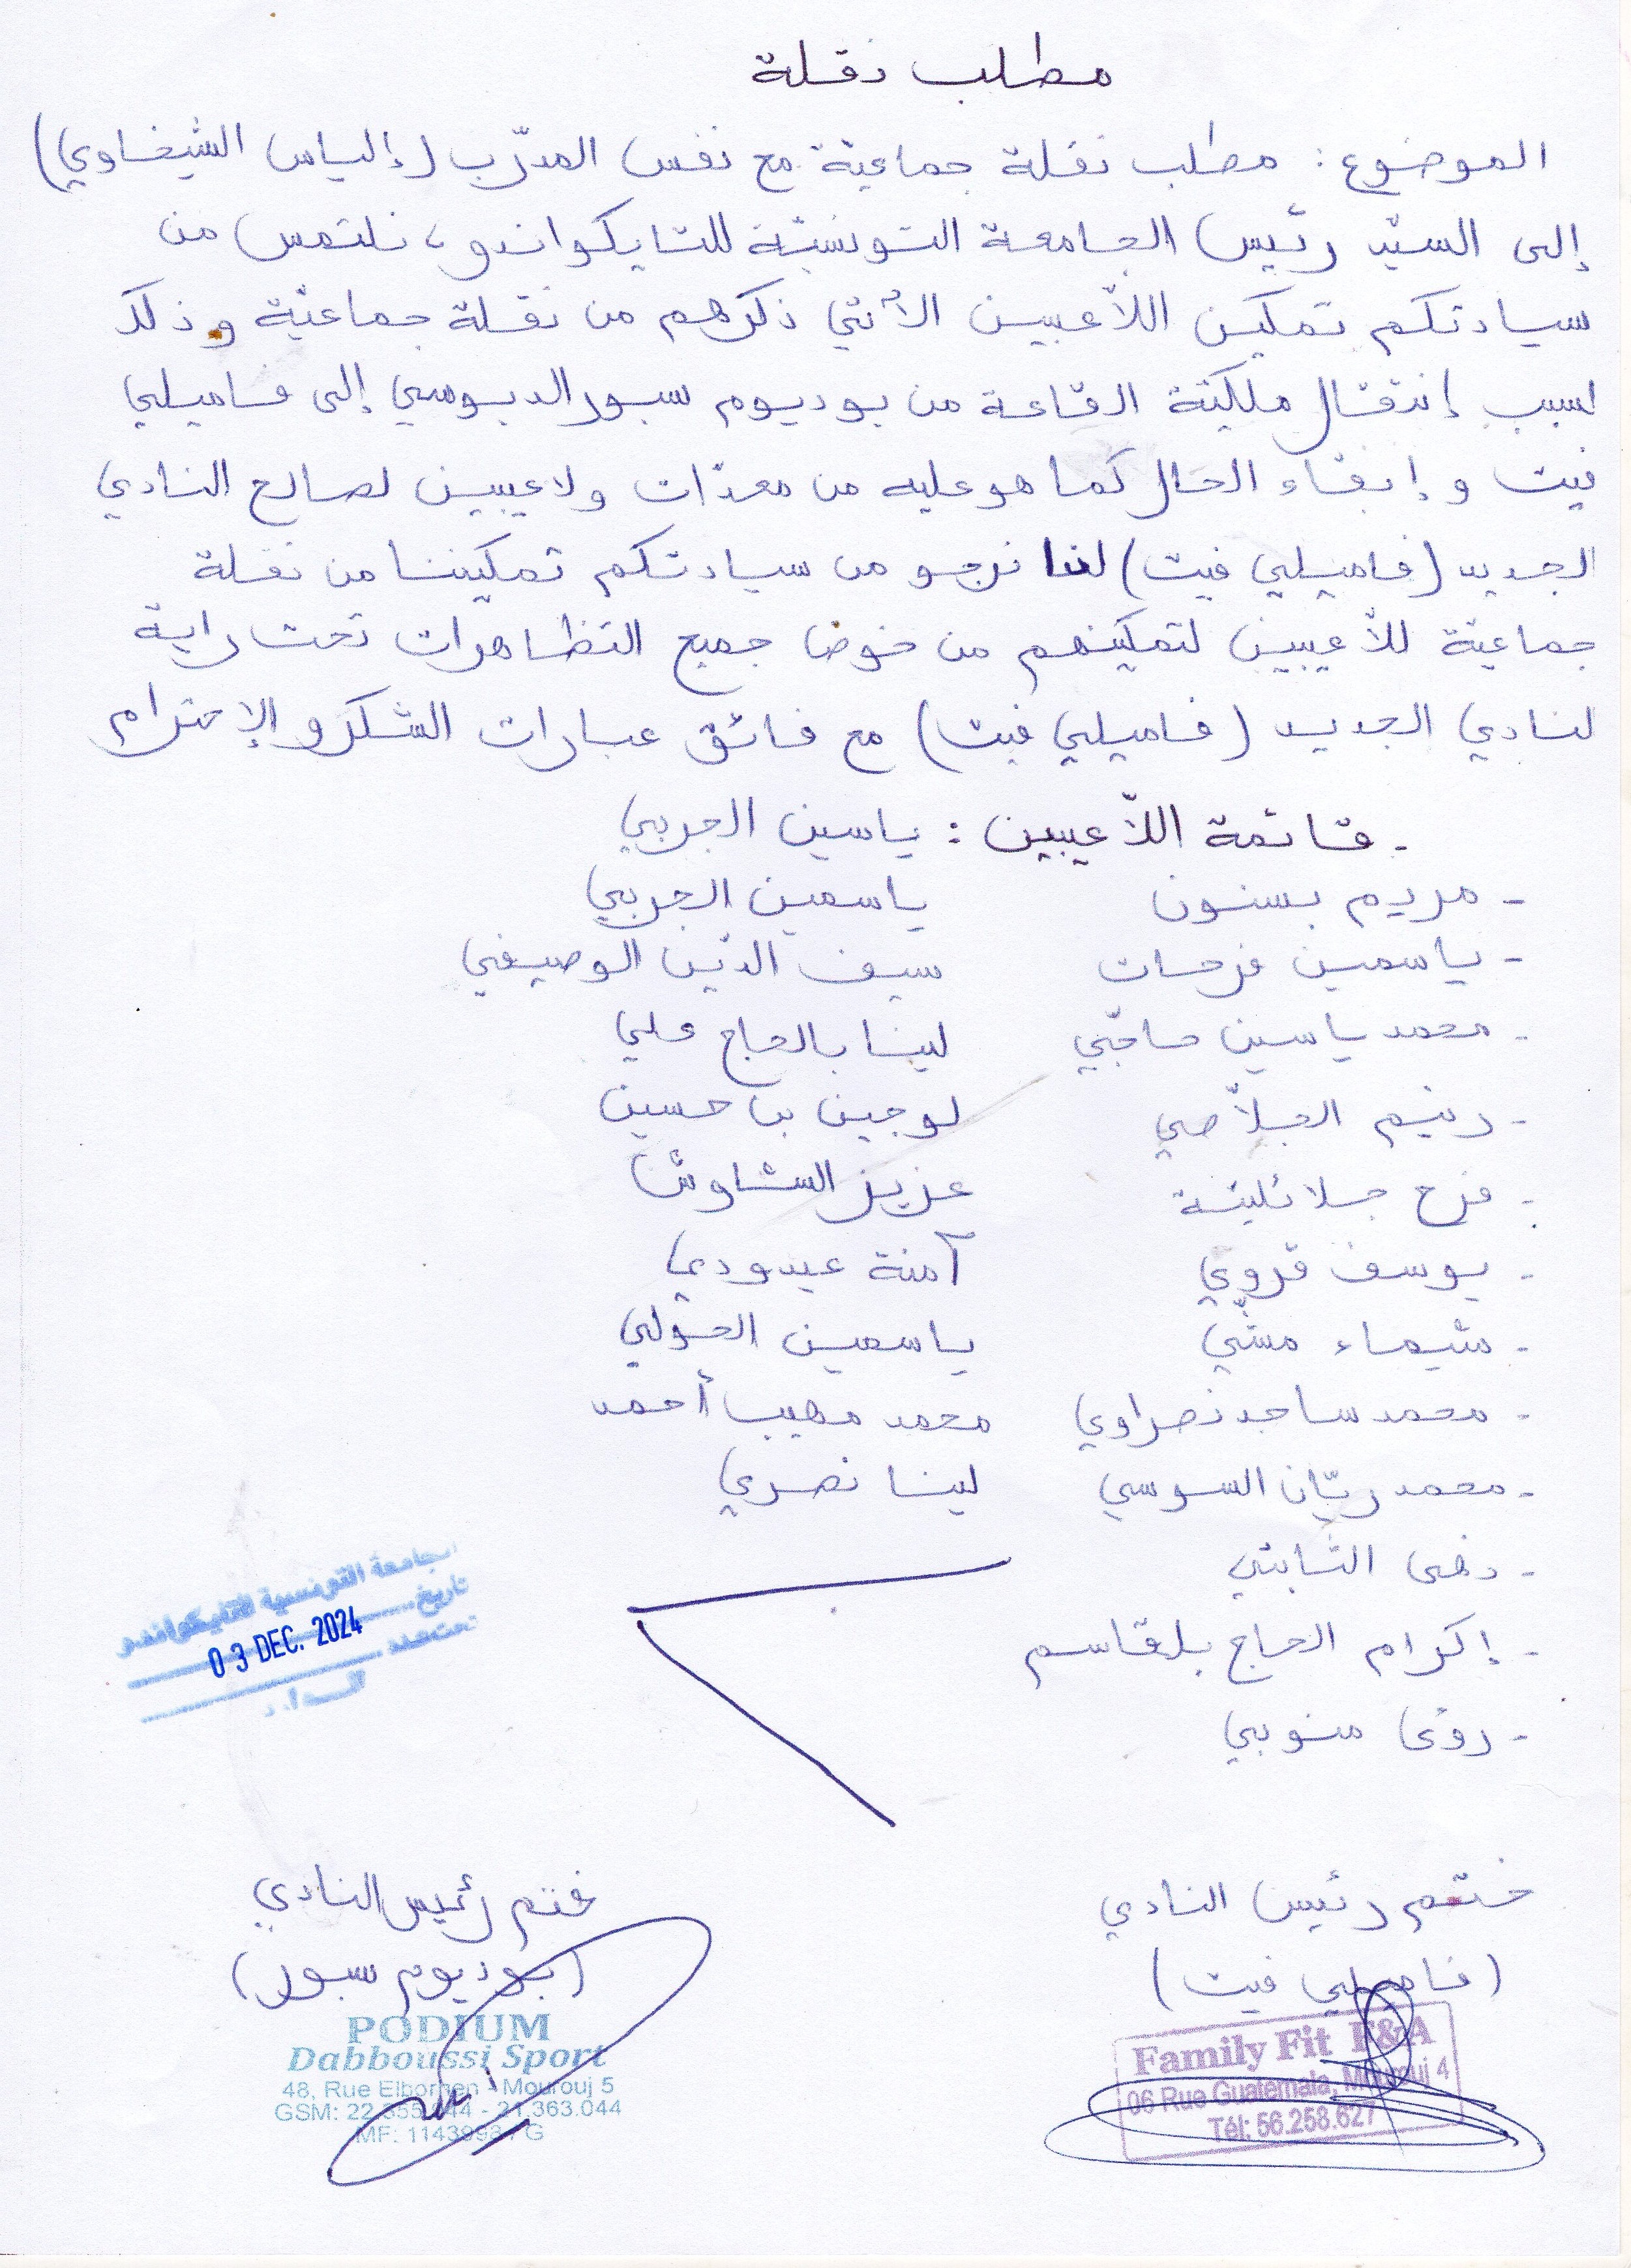 مطلب نقلة
الموضوع: مطلب نقلة جماعيّة مع نفس المدرّب (إلياس الشيخاوي)
إلى السيّد رئيس الجامعة التونسيّة للتايكواندو، نلتمس من
سيادتكم تمكين اللاّعبين الأتي ذكرهم من نقلة جماعيّة وذلك
لسبب إنتقال ملكيّة القاعة من بوديوم سبور الدبوسي إلى فاميلي
فيت و إبقاء الحال كما هو عليه من معدّات ولاعيبين لصالح النادي
الجديد (فاميلي فيت) لذا نرجو من سيادتكم تمكيننا من نقلة
جماعيّة للاّعيبين لتمكينهم من خوض جميع التظاهرات تحت راية
لنادي الجديد (فاميلي فيت) مع فائق عبارات الشكر و الإحترام
- قائمة اللاّعيبين : ياسين الجربي
- مريم بسنون ياسمين الجربي
- ياسمين فرحات سيف الدّين الوصيفي
- محمد ياسين حاجّي لينا بالحاج علي
- رنيم الجلاّصي لوجين بن حسين
- فرح جلائليّة عزيز الشاوش
- يوسف قروي آمنة عيدودي
- شيماء مشّي ياسمين الحولي
- محمد ساجد نصراوي محمد مهيب أحمد
- محمد ريّان السوسي لينا نصري
- رهى الثابتي
- إكرام الحاج بلقاسم
- رؤى منوبي
الجامعة التونسية للتايكواندو
تاريخ
03 DEC. 2024
تحت عدد
ختم رئيس النادي ختم رئيس النادي
(فاميلي فيت) (بوديوم سبور)
PODIUM
Dabboussi Sport
48, Rue Elborgen - Mourouj 5
GSM: 22.355.044 - 21.363.044
MF: G
Family Fit F&A
06 Rue Guatemala, Mourouj 4
Tél: 56.258.627